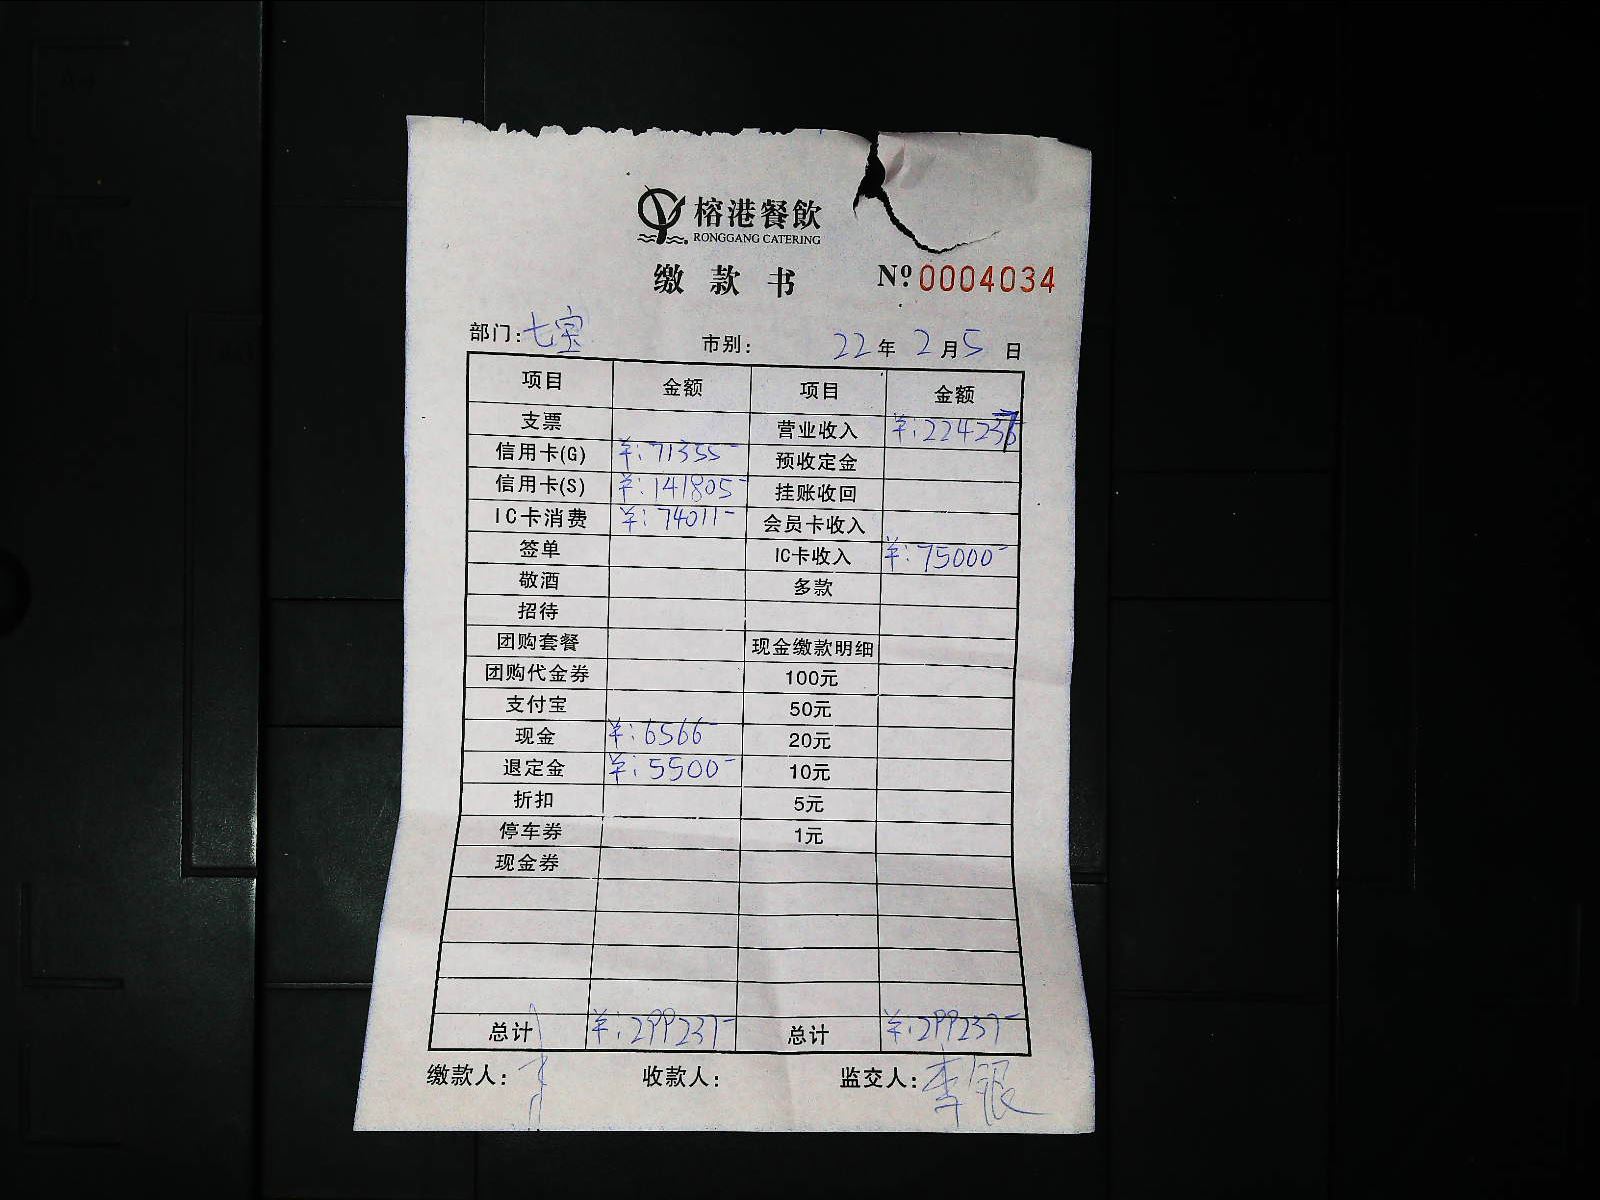 榕港餐飲
RONGGANG CATERING
缴款书 Nº 0004034
部门:七宝 市别: 22年2月5日
项目 金额 项目 金额
支票 营业收入 ¥:224237
信用卡(G) ¥:71355- 预收定金
信用卡(S) ¥:141805- 挂账收回
IC卡消费 ¥:74011- 会员卡收入
签单 IC卡收入 ¥:75000-
敬酒 多款
招待
团购套餐 现金缴款明细
团购代金券 100元
支付宝 50元
现金 ¥:6566- 20元
退定金 ¥:5500- 10元
折扣 5元
停车券 1元
现金券
总计 ¥:299237- 总计 ¥:299237-
缴款人: 收款人: 监交人:李银